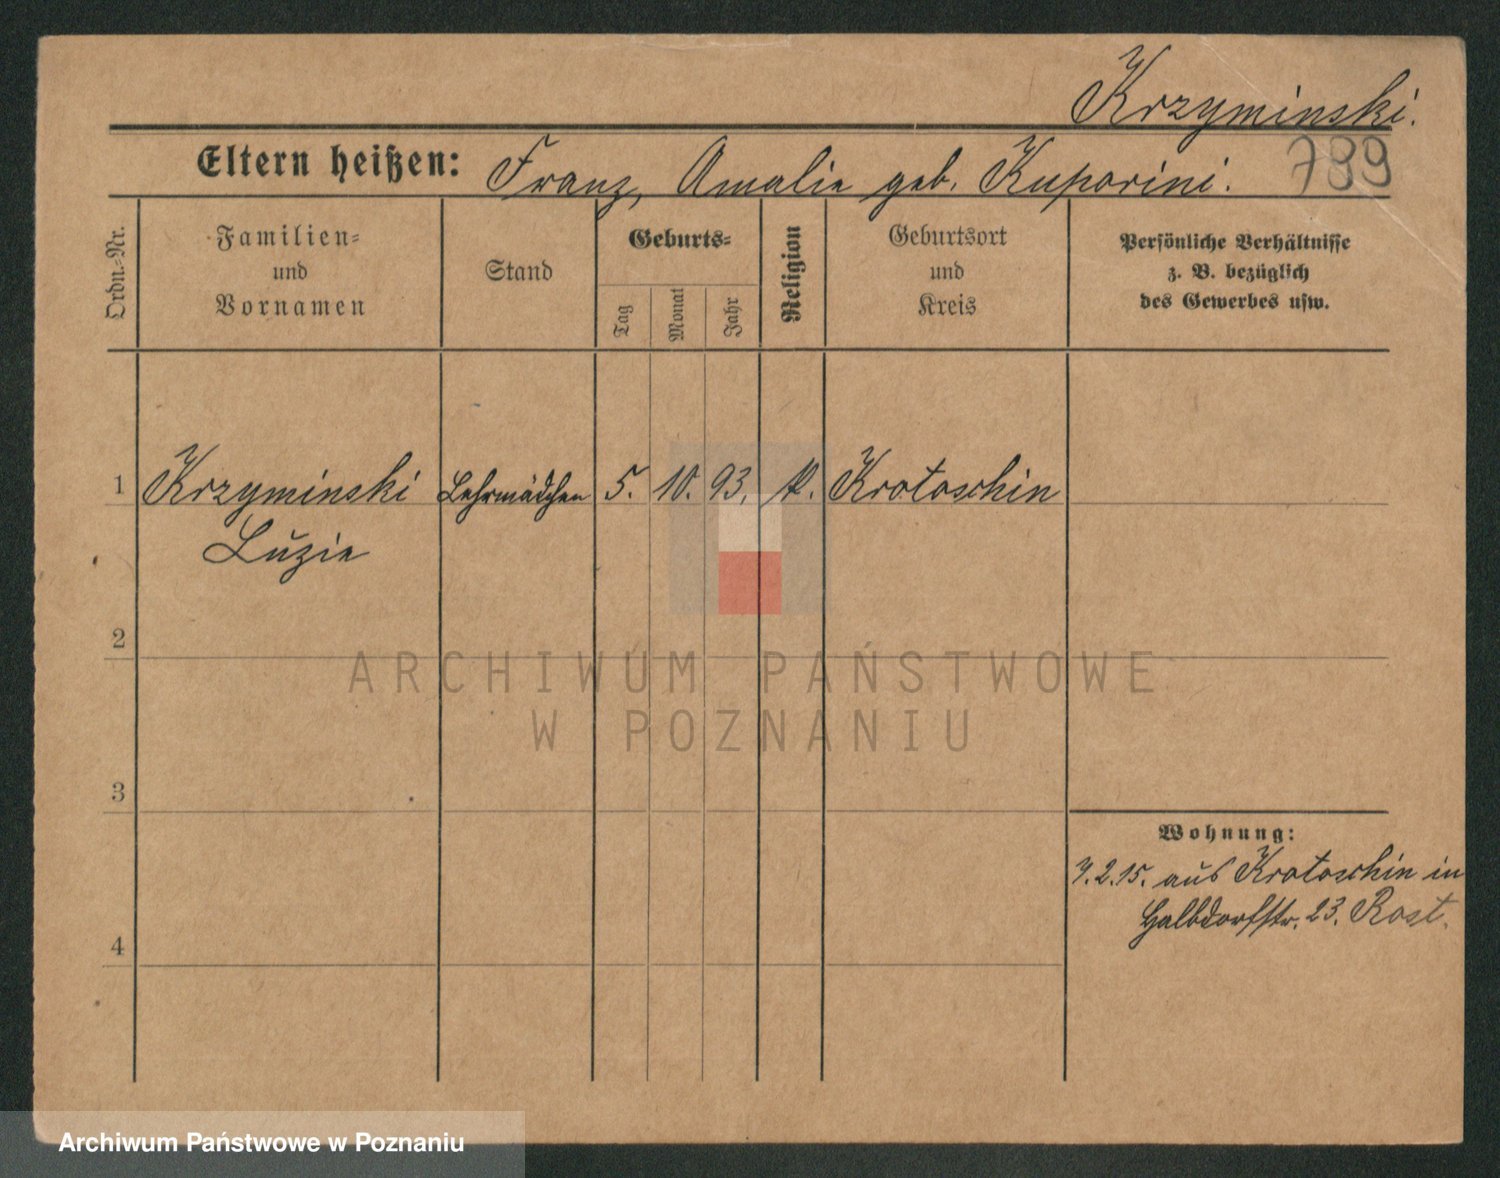 Krzyminski.
789
Eltern heißen: Franz, Amalie geb. Kuparini.
Ordn.-Nr.
Familien-
und
Vornamen
Stand
Geburts-
Tag
Monat
Jahr
Religion
Geburtsort
und
Kreis
Persönliche Verhältnisse
z. B. bezüglich
des Gewerbes usw.
1 Krzyminski Lehrmädchen 5. 10. 93. Krotoschin
Luzie
2
3
4
Wohnung:
7.2.15. aus Krotoschin in
Halbdorfstr. 23. Rost.
ARCHIWUM PAŃSTWOWE
W POZNANIU
Archiwum Państwowe w Poznaniu